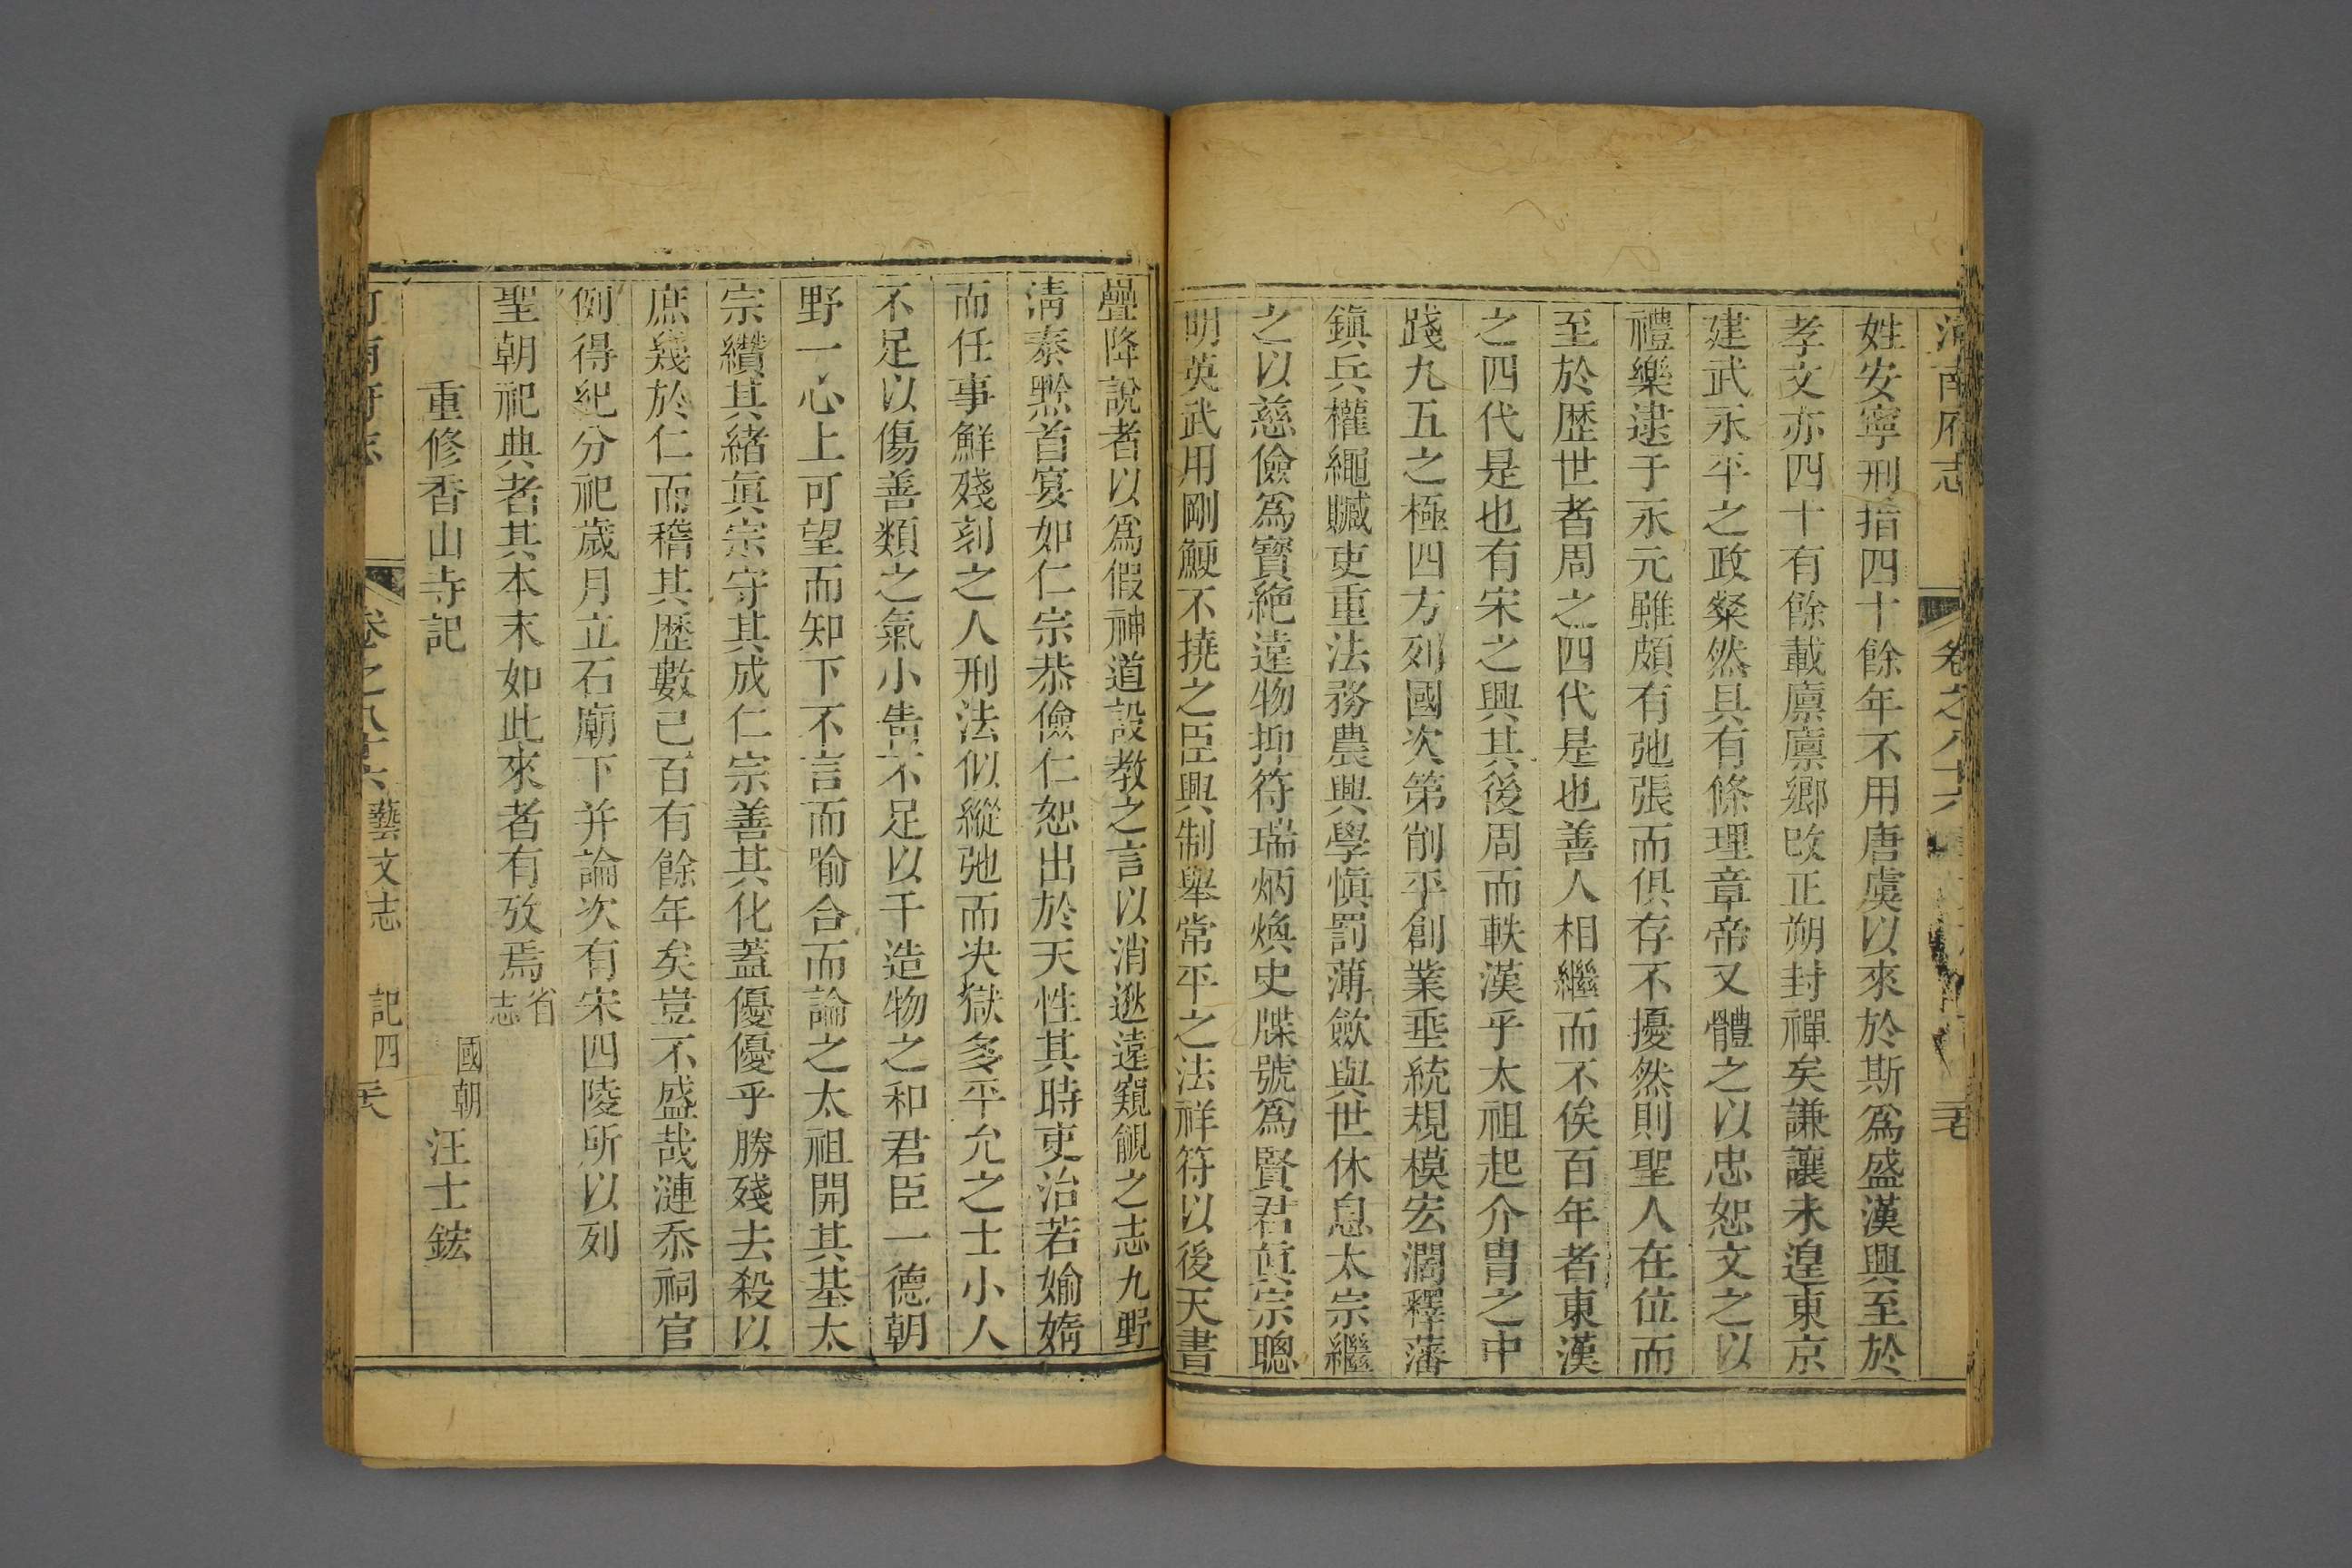 河南府志 卷之八十六
姓安寧刑措四十餘年不用唐虞以來於斯爲盛漢興至於
孝文亦四十有餘載廩廩鄉改正朔封禪矣謙讓未遑東京
建武永平之政粲然具有條理章帝又體之以忠恕文之以
禮樂逮于永元雖頗有弛張而俱存不擾然則聖人在位而
至於歷世者周之四代是也善人相繼而不俟百年者東漢
之四代是也有宋之興其後周而軼漢乎太祖起介胄之中
踐九五之極四方列國次第削平創業垂統規模宏濶釋藩
鎭兵權繩贓吏重法務農興學愼罰薄歛與世休息太宗繼
之以慈儉爲寶絶遠物抑符瑞炳煥史牒號爲賢君眞宗聰
明英武用剛鯁不撓之臣興制舉常平之法祥符以後天書
疊降說者以爲假神道設教之言以消遯遠窺覦之志九野
淸泰黙首宴如仁宗恭儉仁恕出於天性其時吏治若媮惰
而任事鮮殘刻之人刑法似縱弛而决獄多平允之士小人
不足以傷善類之氣小眚不足以干造物之和君臣一德朝
野一心上可望而知下不言而喻合而論之太祖開其基太
宗纘其緒眞宗守其成仁宗善其化蓋優優乎勝殘去殺以
庶幾於仁而稽其歷數已百有餘年矣豈不盛哉漣忝祠官
例得紀分祀歲月立石廟下并論次有宋四陵所以列
聖朝祀典者其本末如此來者有攷焉省志
重修香山寺記 國朝 汪士鋐
河南府志 卷之八十六 藝文志 記四